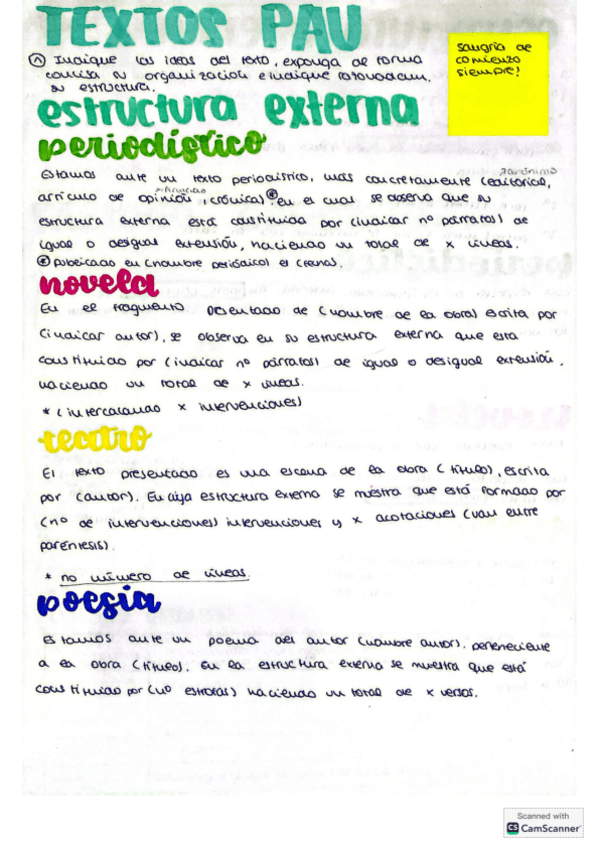 TEXTOS PAU
① Indique las ideas del texto, exponga de forma
concisa su organización e indique razonadam.
su estructura.
sangría de
comienzo
siempre!
estructura externa
periodístico
Estamos ante un texto periodístico, más concretamente (editorial,
artículo de opinión, crónica) en el cual se observa que su
estructura externa está constituida por (indicar nº párrafos) de
igual o desigual extensión, haciendo un total de x líneas.
publicado en (nombre periódico) el (fecha).
novela
En el fragmento presentado de (nombre de la obra) escrita por
(indicar autor), se observa en su estructura externa que está
constituido por (indicar nº párrafos) de igual o desigual extensión,
haciendo un total de x líneas.
* (intercalando x intervenciones)
teatro
El texto presentado es una escena de la obra (título), escrita
por (autor). En cuya estructura externa se muestra que está formado por
(nº de intervenciones) intervenciones y x acotaciones (van entre
paréntesis).
* no número de líneas.
poesía
Estamos ante un poema del autor (nombre autor), perteneciente
a la obra (título). En la estructura externa se muestra que está
constituido por (nº estrofas) haciendo un total de x versos.
Scanned with
CS CamScanner